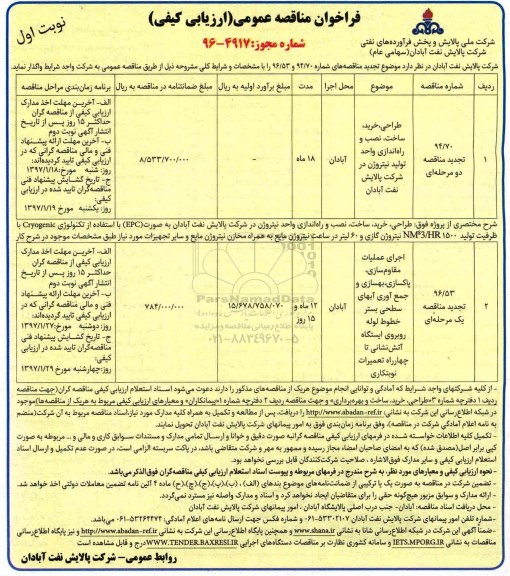 نوبت اول
فراخوان مناقصه عمومی(ارزیابی کیفی)
شماره مجوز:۴۹۱۷-۹۶
شرکت ملی پالایش و پخش فرآورده‌های نفتی
شرکت پالایش نفت آبادان(سهامی عام)
شرکت پالایش نفت آبادان در نظر دارد موضوع تجدید مناقصه‌های شماره ۹۴/۷۰ و ۹۶/۵۳ را با مشخصات و شرایط کلی مشروحه ذیل از طریق مناقصه عمومی به شرکت واجد شرایط واگذار نماید.
ردیف شماره مناقصه موضوع محل اجرا مدت مبلغ برآورد اولیه به ریال مبلغ ضمانتنامه در مناقصه به ریال برنامه زمان‌بندی مراحل مناقصه
۱
۹۴/۷۰
تجدید مناقصه
دو مرحله‌ای
طراحی،خرید،
ساخت، نصب و
راه‌اندازی واحد
تولید نیتروژن در
شرکت پالایش
نفت آبادان
آبادان
۱۸ ماه
-
۸/۵۳۳/۷۰۰/۰۰۰
الف- آخرین مهلت اخذ مدارک
ارزیابی کیفی از مناقصه گران
حداکثر ۱۵ روز پس از تاریخ
انتشار آگهی نوبت دوم
ب- آخرین مهلت ارائه پیشنهاد
فنی و مالی مناقصه گرانی که در
ارزیابی کیفی تایید گردیده‌اند:
روز: شنبه مورخ:۱۳۹۷/۱/۱۸
ج- تاریخ گشایش پیشنهاد فنی
مناقصه‌گران تایید شده در ارزیابی
کیفی:
روز: یکشنبه مورخ ۱۳۹۷/۱/۱۹
شرح مختصری از پروژه فوق: طراحی، خرید، ساخت، نصب و راه‌اندازی واحد نیتروژن در شرکت پالایش نفت آبادان به صورت(EPC) با استفاده از تکنولوژی Cryogenic با
ظرفیت تولید ۱۵۰۰ NM³/HR نیتروژن گازی و ۶۰ لیتر در ساعت نیتروژن مایع به همراه مخازن نیتروژن مایع و سایر تجهیزات مورد نیاز طبق مشخصات موجود در شرح کار
۲
۹۶/۵۳
تجدید مناقصه
یک مرحله‌ای
اجرای عملیات
مقاوم‌سازی،
پاکسازی،بهسازی و
جمع آوری آبهای
سطحی بستر
خطوط لوله
روبروی ایستگاه
آتش‌نشانی تا
چهارراه تعمیرات
نوبتکاری
آبادان
۱۲ ماه و
۱۵ روز
۱۵/۶۷۸/۷۵۸/۰۷۰
۷۸۴/۰۰۰/۰۰۰
الف- آخرین مهلت اخذ مدارک
ارزیابی کیفی از مناقصه گران
حداکثر ۱۵ روز پس از تاریخ
انتشار آگهی نوبت دوم
ب- آخرین مهلت ارائه پیشنهاد
فنی و مالی مناقصه گرانی که در
ارزیابی کیفی تایید گردیده‌اند:
روز: دوشنبه مورخ:۱۳۹۷/۱/۲۷
ج- تاریخ گشایش پیشنهاد فنی
مناقصه‌گران تایید شده در ارزیابی
کیفی:
روز:چهارشنبه مورخ ۱۳۹۷/۱/۲۹
ParsNamadData
پایگاه اطلاع رسانی مناقصه و مزایده
۰۲۱-۸۸۳۴۹۶۷۰-۵
- از کلیه شرکتهای واجد شرایط که آمادگی و توانایی انجام موضوع هریک از مناقصه‌های مذکور را دارند دعوت می‌شود اسناد استعلام ارزیابی کیفی مناقصه گران(جهت مناقصه
ردیف ۱ دفترچه شماره ۳«طراحی، خرید، ساخت و بهره‌برداری» و جهت مناقصه ردیف ۲ دفترچه شماره ۱«پیمانکاران» و معیارهای ارزیابی کیفی مربوط به هریک از مناقصه‌ها)موجود
در شبکه اطلاع‌رسانی این شرکت به نشانی: http://www.abadan-ref.ir را دریافت، پس از مطالعه و تکمیل به همراه کلیه مدارک مورد نیاز،اسناد مناقصه مربوط به آن شرکت(منضم
به نامه اعلام آمادگی شرکت در مناقصه)، وفق برنامه زمان‌بندی فوق به امور پیمانهای شرکت پالایش نفت آبادان تحویل نمایند.
- تکمیل کلیه اطلاعات خواسته شده در فرمهای ارزیابی کیفی مناقصه گرانبه صورت دقیق و خوانا و ارسال تمامی مدارک و مستندات سوابق کاری و مالی و ... مربوطه به صورت
کپی برابر اصل(مصدق شده) که به امضای صاحبان امضاء مجاز رسیده و ممهور به مهر و شرکت متقاضی باشد، در پاکت سربسته الزامی است، در صورت عدم تکمیل و ارسال اسناد
استعلام ارزیابی کیفی و سایر مدارک فوق‌الاشاره ، صلاحیت شرکت‌کنندگان قابل بررسی نخواهد بود.
- نحوه ارزیابی کیفی و معیارهای مورد نظر، به شرح مندرج در فرمهای مربوطه و پیوست اسناد استعلام ارزیابی کیفی مناقصه‌گران فوق‌الذکر می‌باشد.
- تضمین شرکت در مناقصه به صورت یک یا ترکیبی از ضمانت‌نامه‌های موضوع بندهای (الف) ، (ب)،(پ)،(ج)،(ح) ماده ۴ آئین نامه تضمین معاملات دولتی اخذ خواهد شد.
- ارائه مدارک و سوابق مزبور هیچ‌گونه حقی را برای متقاضیان ایجاد نخواهد کرد و اسناد و مدارک واصله نیز مسترد نمی‌گردد.
- محل دریافت اسناد مناقصه/آبادان- جنب درب اصلی پالایشگاه آبادان ، امور پیمانهای شرکت پالایش نفت آبادان
-شماره تلفن امور پیمانهای شرکت پالایش نفت آبادان ۷-۰۶۱-۵۳۳۰۲۱۰ و شماره فکس جهت ارسال نامه‌های اعلام آمادگی: ۰۶۱-۵۳۲۶۴۴۷۴ می‌باشد.
-ضمنا آگهی این شرکت در شبکه اطلاع‌رسانی شانا به نشانی www.shana.ir و همچنین پایگاه اطلاع‌رسانی این شرکت به نشانی http://www.abadan-ref.ir و نیز پایگاه اطلاع‌رسانی
مناقصات به نشانی IETS.MPORG.IR و سامانه کشوری نظارت بر مناقصات دستگاه‌های اجرایی WWW.TENDER.BAZRESI.IR درج و قابل مشاهده است
روابط عمومی- شرکت پالایش نفت آبادان